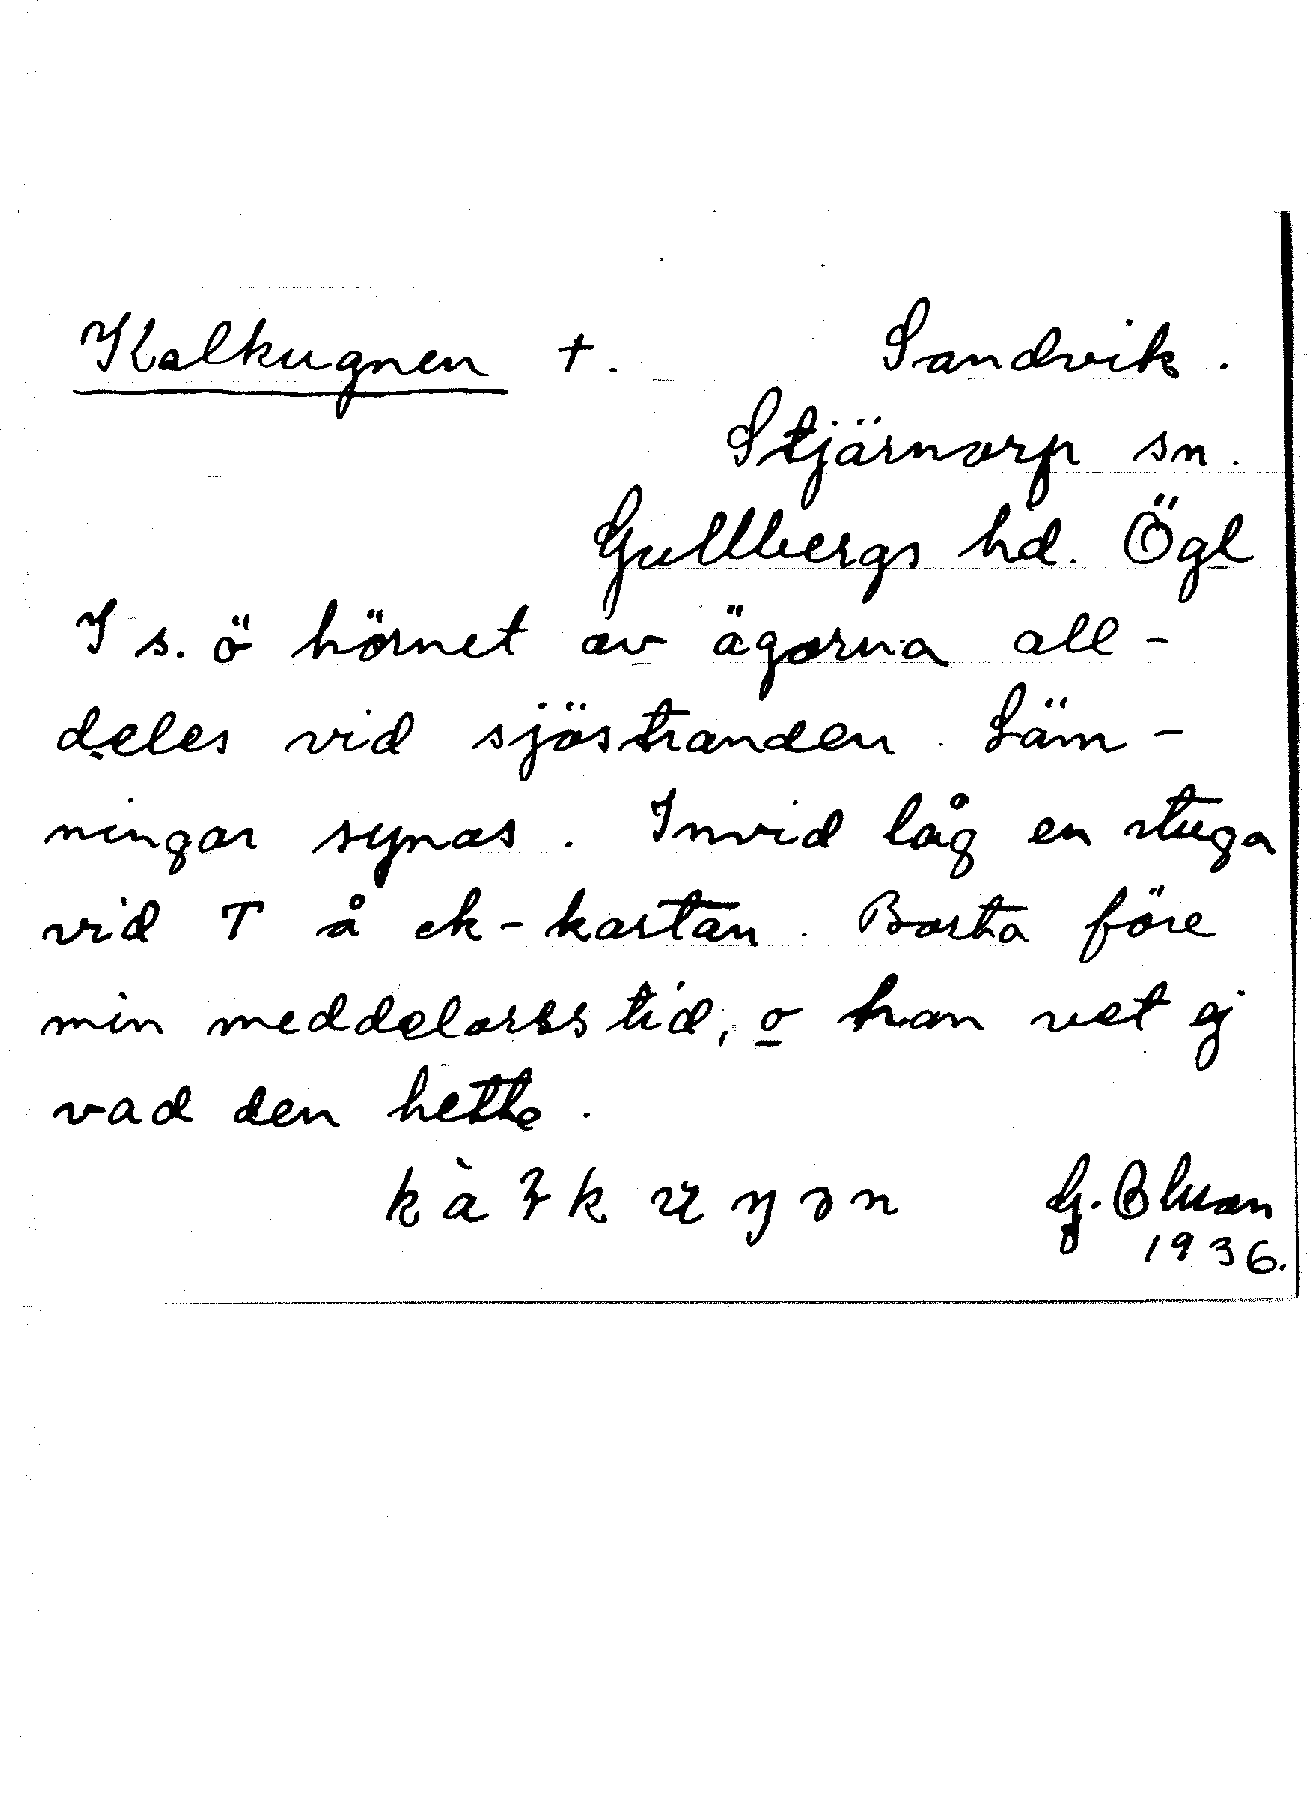 Kalkugnen +. Sandvik.
Stjärnorp sn.
Gullbergs hd. Ögl
I s. ö hörnet av ägorna all-
deles vid sjöstranden. Läm-
ningar synas. Invid låg en stuga
vid T å ek-kartan. Borta före
min meddelares tid, o han vet ej
vad den hette.
G. Blman
1936.